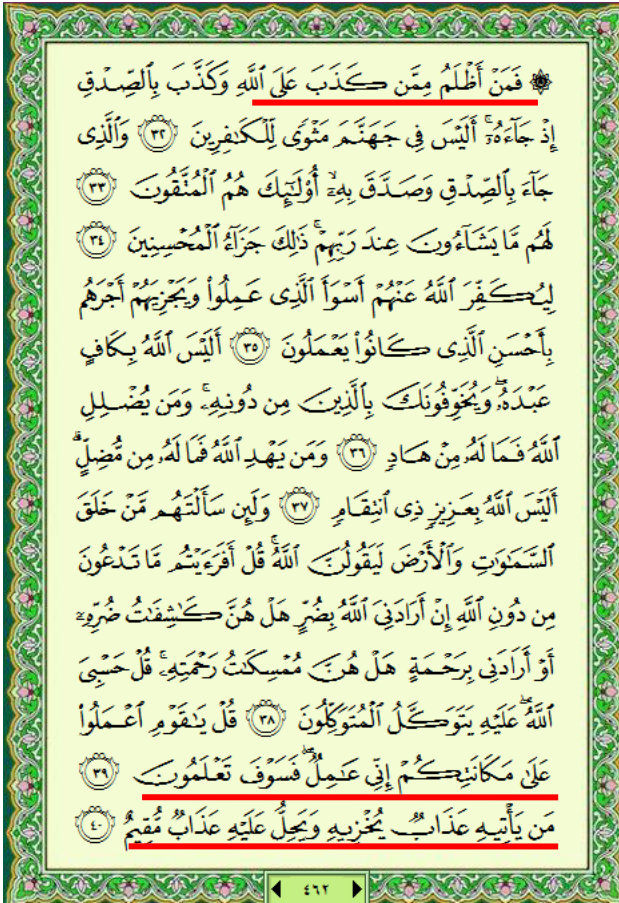 ۞ فَمَنْ أَظْلَمُ مِمَّن كَذَبَ عَلَى ٱللَّهِ وَكَذَّبَ بِٱلصِّدْقِ
إِذْ جَآءَهُۥٓ ۚ أَلَيْسَ فِى جَهَنَّمَ مَثْوًى لِّلْكَٰفِرِينَ ٣٢ وَٱلَّذِى
جَآءَ بِٱلصِّدْقِ وَصَدَّقَ بِهِۦٓ ۙ أُو۟لَٰٓئِكَ هُمُ ٱلْمُتَّقُونَ ٣٣
لَهُم مَّا يَشَآءُونَ عِندَ رَبِّهِمْ ۚ ذَٰلِكَ جَزَآءُ ٱلْمُحْسِنِينَ ٣٤
لِيُكَفِّرَ ٱللَّهُ عَنْهُمْ أَسْوَأَ ٱلَّذِى عَمِلُوا۟ وَيَجْزِيَهُمْ أَجْرَهُم
بِأَحْسَنِ ٱلَّذِى كَانُوا۟ يَعْمَلُونَ ٣٥ أَلَيْسَ ٱللَّهُ بِكَافٍ
عَبْدَهُۥ ۖ وَيُخَوِّفُونَكَ بِٱلَّذِينَ مِن دُونِهِۦ ۚ وَمَن يُضْلِلِ
ٱللَّهُ فَمَا لَهُۥ مِنْ هَادٍ ٣٦ وَمَن يَهْدِ ٱللَّهُ فَمَا لَهُۥ مِن مُّضِلٍّ ۗ
أَلَيْسَ ٱللَّهُ بِعَزِيزٍ ذِى ٱنتِقَامٍ ٣٧ وَلَئِن سَأَلْتَهُم مَّنْ خَلَقَ
ٱلسَّمَٰوَٰتِ وَٱلْأَرْضَ لَيَقُولُنَّ ٱللَّهُ ۚ قُلْ أَفَرَءَيْتُم مَّا تَدْعُونَ
مِن دُونِ ٱللَّهِ إِنْ أَرَادَنِىَ ٱللَّهُ بِضُرٍّ هَلْ هُنَّ كَٰشِفَٰتُ ضُرِّهِۦٓ
أَوْ أَرَادَنِى بِرَحْمَةٍ هَلْ هُنَّ مُمْسِكَٰتُ رَحْمَتِهِۦ ۚ قُلْ حَسْبِىَ
ٱللَّهُ ۖ عَلَيْهِ يَتَوَكَّلُ ٱلْمُتَوَكِّلُونَ ٣٨ قُلْ يَٰقَوْمِ ٱعْمَلُوا۟
عَلَىٰ مَكَانَتِكُمْ إِنِّى عَٰمِلٌ ۖ فَسَوْفَ تَعْلَمُونَ ٣٩
مَن يَأْتِيهِ عَذَابٌ يُخْزِيهِ وَيَحِلُّ عَلَيْهِ عَذَابٌ مُّقِيمٌ ٤٠
٤٦٢